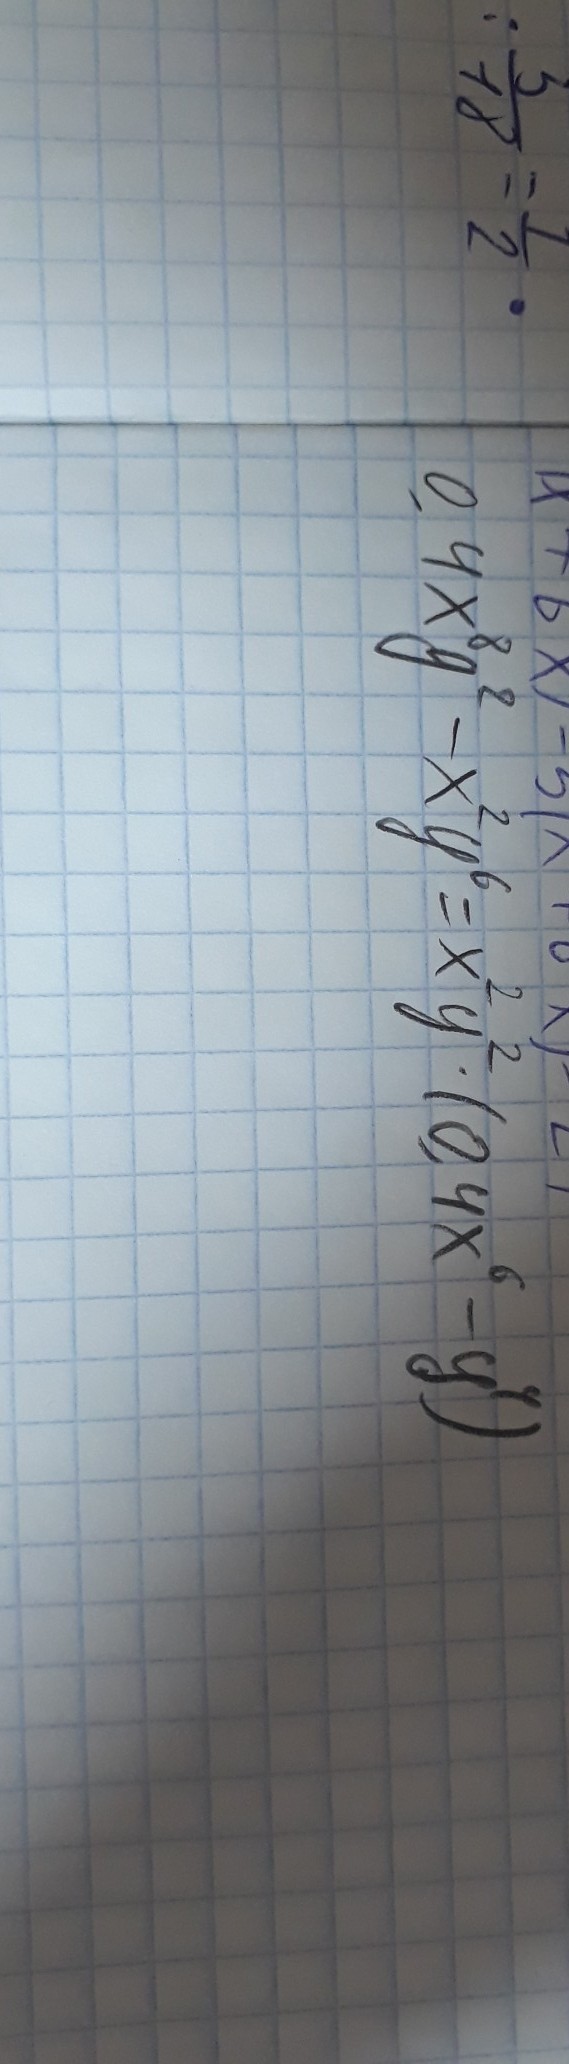 : 3/18 = 1/2 ·
0,4x⁸y² - x²y⁶ = x²y² · (0,4x⁶ - y⁴)